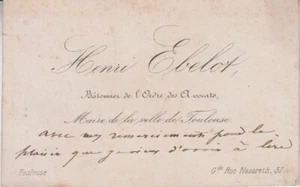 Henri Ebelot,
Bâtonnier de l'Ordre des Avocats,
Maire de la ville de Toulouse
avec mes remerciements pour le
plaisir que je viens d'avoir à lire
Toulouse
Gde Rue Nazareth, 37.